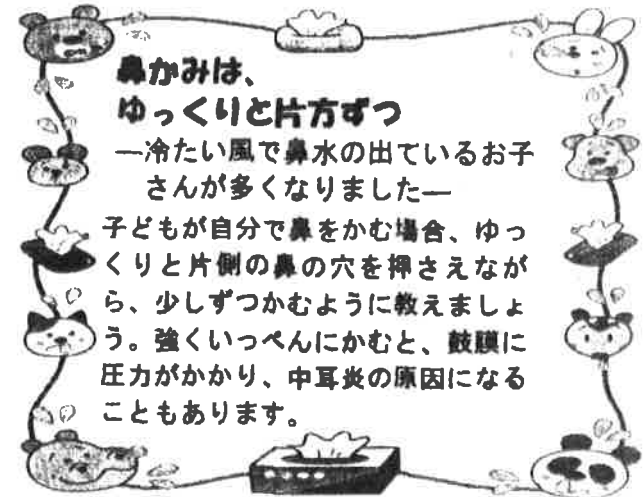 鼻かみは、
ゆっくりと片方ずつ
―冷たい風で鼻水の出ているお子
さんが多くなりました―
子どもが自分で鼻をかむ場合、ゆっ
くりと片側の鼻の穴を押さえなが
ら、少しずつかむように教えましょ
う。強くいっぺんにかむと、鼓膜に
圧力がかかり、中耳炎の原因になる
こともあります。